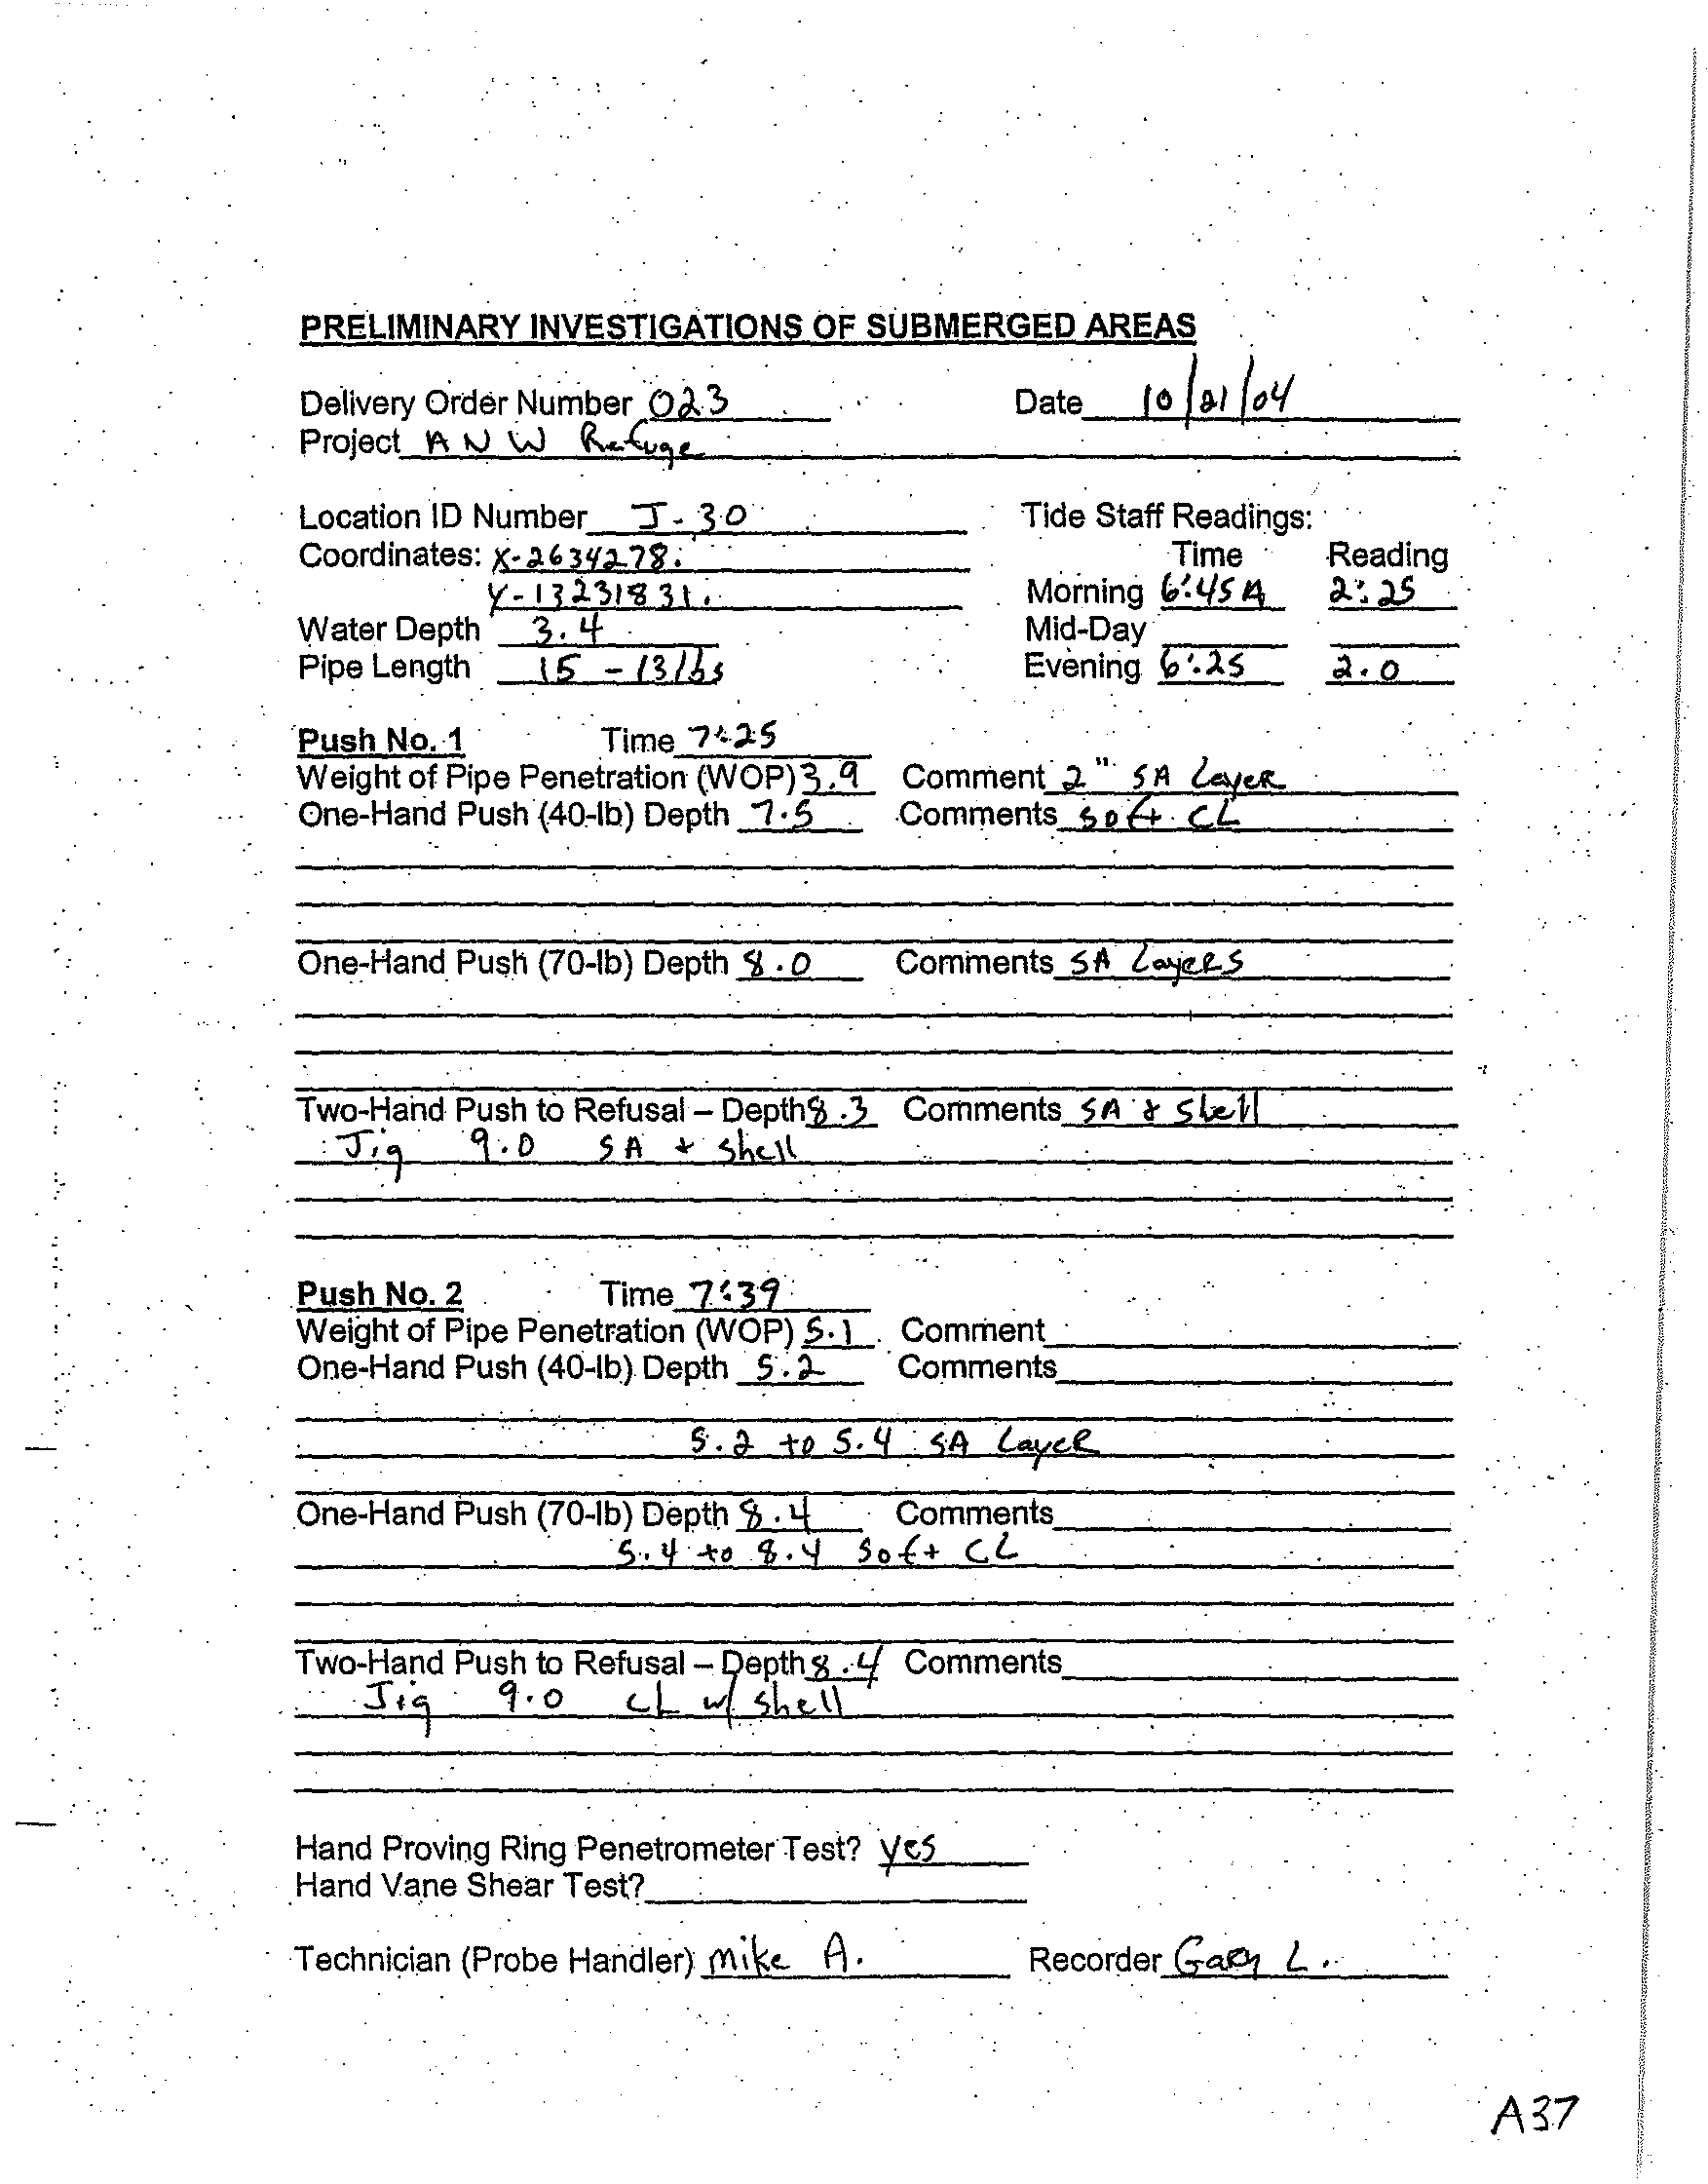 PRELIMINARY INVESTIGATIONS OF SUBMERGED AREAS
Delivery Order Number 023 Date 10/21/04
Project ANW Refuge
Location ID Number J-30 Tide Staff Readings:
Coordinates: X-2634278. Time Reading
Y-13231831. Morning 6:45 A 2.25
Water Depth 3.4 Mid-Day
Pipe Length 15 - 13 lbs Evening 6:25 2.0
Push No. 1 Time 7:25
Weight of Pipe Penetration (WOP) 3.9 Comment 2" SA Layer
One-Hand Push (40-lb) Depth 7.5 Comments Soft CL
One-Hand Push (70-lb) Depth 8.0 Comments SA Layers
Two-Hand Push to Refusal – Depth 8.3 Comments SA & Shell
Jig 9.0 SA + Shell
Push No. 2 Time 7:39
Weight of Pipe Penetration (WOP) 5.1 Comment
One-Hand Push (40-lb) Depth 5.2 Comments
5.2 to 5.4 SA Layer
One-Hand Push (70-lb) Depth 8.4 Comments
5.4 to 8.4 Soft CL
Two-Hand Push to Refusal – Depth 8.4 Comments
Jig 9.0 CL w/ shell
Hand Proving Ring Penetrometer Test? yes
Hand Vane Shear Test?
Technician (Probe Handler) Mike A. Recorder Gary L.
A37